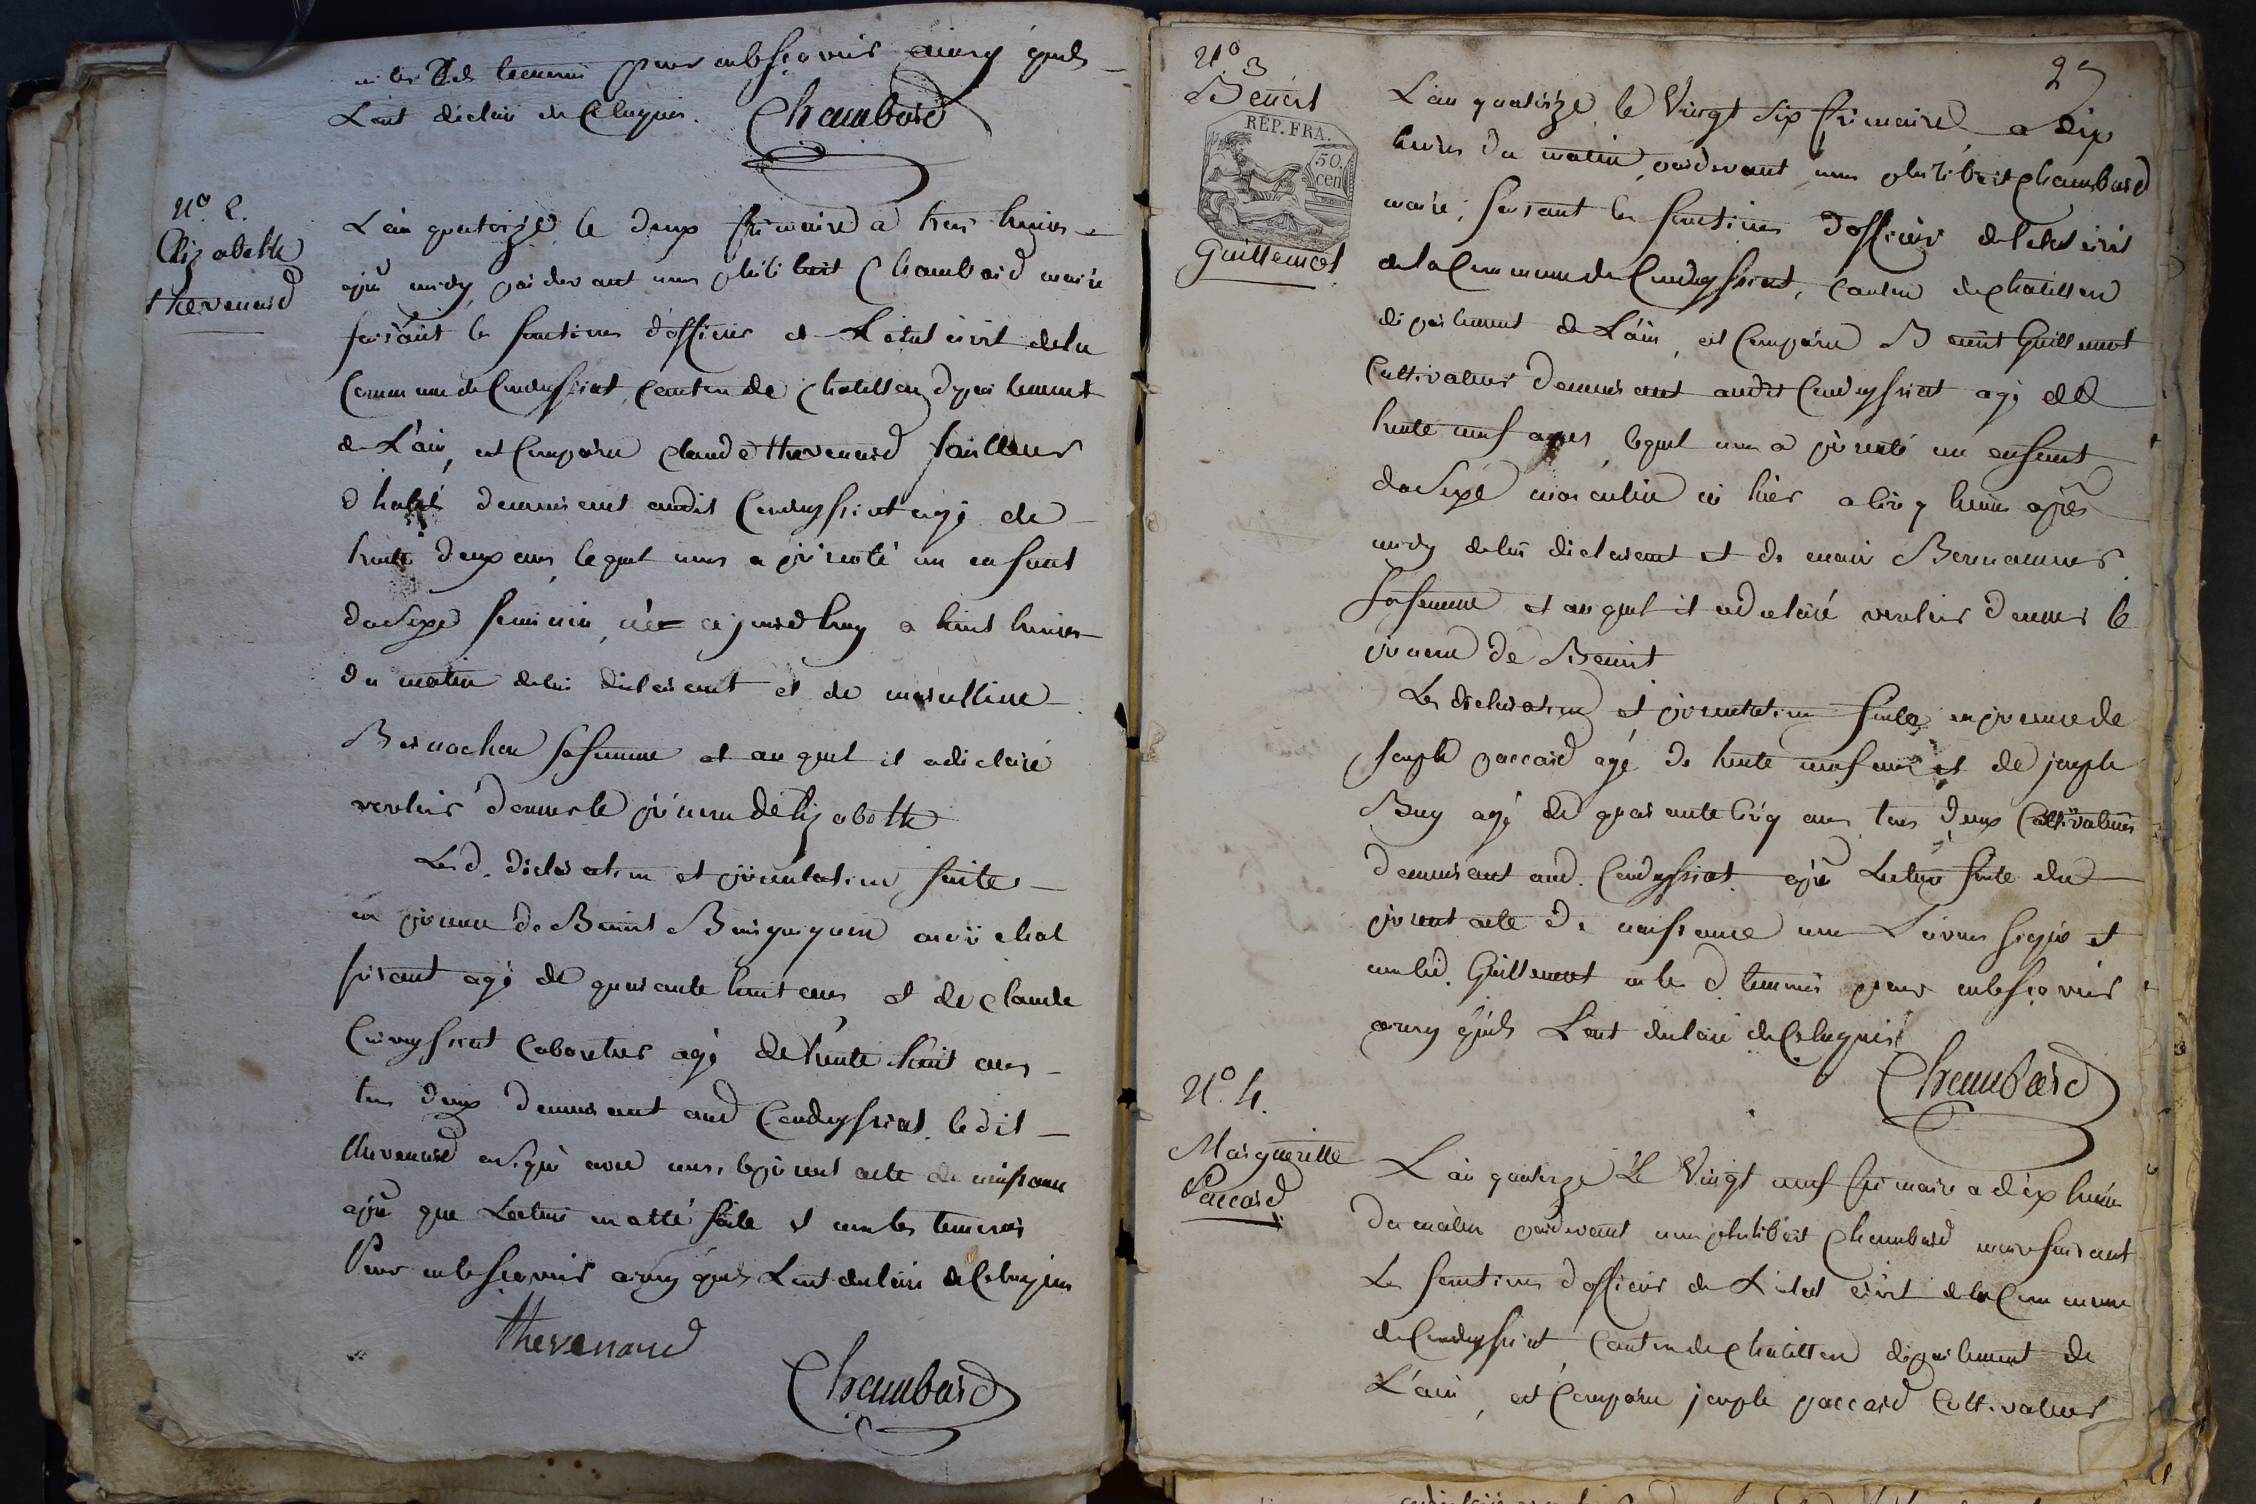 ni les d. temoins pour ne le sçavoir ainsy quils
L'ont déclairé de Ce enquis. Chambard
N.° 2.
Elizabethe
thevenard
L'an quatorze, le deux frimaire a trois heures
après midy, pardevant nous philibert Chambard maire
faisant les fonctions d'officier de L'état civil dela
Commune de Condeyssiat, Canton de Chatillon, departement
de L'ain, est Comparu Claude thevenard tailleur
d'habit demeurant audit Condeyssiat agé de
trente deux ans, lequel nous a présenté un enfant
du Sexe feminin, née ce jourd'huy a huit heures
du matin delui déclarant et de marcelline
Bernachon sa femme et au quel il a déclairé
vouloir donner le prénom délizabethe
Les d. déclaration et présentation faites
en présence de Benoit Bourguignon maréchal
ferrant agé de quarante huit ans et de Claude
Curnyssiat Cabaretier agé de trente huit ans
tous deux demeurant aud Condeyssiat. ledit
thevenard a signé avec nous le présent acte de naissance
après que Lecture en a été faite et non les temoins
Pour ne le sçavoir ainsy quils L'ont déclairé de Ce enquis
thevenard
Chambard
27
N.° 3
Benoit
REP. FRA.
50.
cen
Guillemot
L'an quatorze, le Vingt Six frimaire a dix
heures du matin, pardevant nous philibert Chambard
maire, faisant les fonctions d'officier de l'état civil
de la Commune de Condeyssiat, Canton de Chatillon
département de L'ain, est Comparu Benoit Guillemot
Cultivateur demeurant audit Condeyssiat agé de
trente neuf ans, lequel nous a présenté un enfant
du Sexe masculin né hier a cinq heures après
midy delui déclarant et de marie
Sa femme et au quel il a déclairé vouloir donner le
prénom de Benoit
Les déclaration et présentation faites en présence de
Joseph paccard agé de trente neuf ans et de joseph
Buy agé de quarante cinq ans tous deux Cultivateurs
demeurant aud. Condeyssiat. après Lecture faite du
présent acte de naissance nous L'avons signé et
non led. Guillemot ni les d temoins pour ne le sçavoir
ainsy quils L'ont déclairé de Ce enquis
Chambard
N.° 4.
Margueritte
Paccard
L'an quatorze Le Vingt neuf frimaire a dix heures
du matin pardevant nous philibert Chambard maire faisant
Les fonctions d'officier de L'état civil de la Commune
de Condeyssiat Canton de Chatillon département de
L'ain, est Comparu joseph paccard Cultivateur